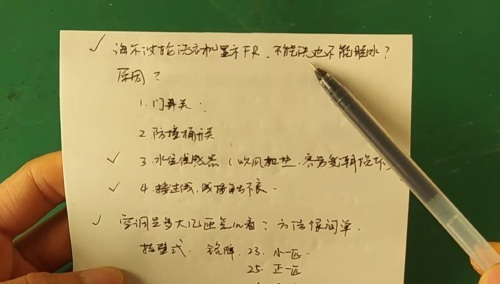 ✓ 海尔波轮洗衣机显示FR，不能洗也不能脱水？
原因？
1. 门开关.
2. 防撞桶开关
✓ 3. 水位传感器（吹风加热，
✓ 4. 接过线，线接触不良.
✓ 空调是多大匹怎么看？方法很简单.
挂壁式 铭牌 23. 小一匹
25. 正一匹